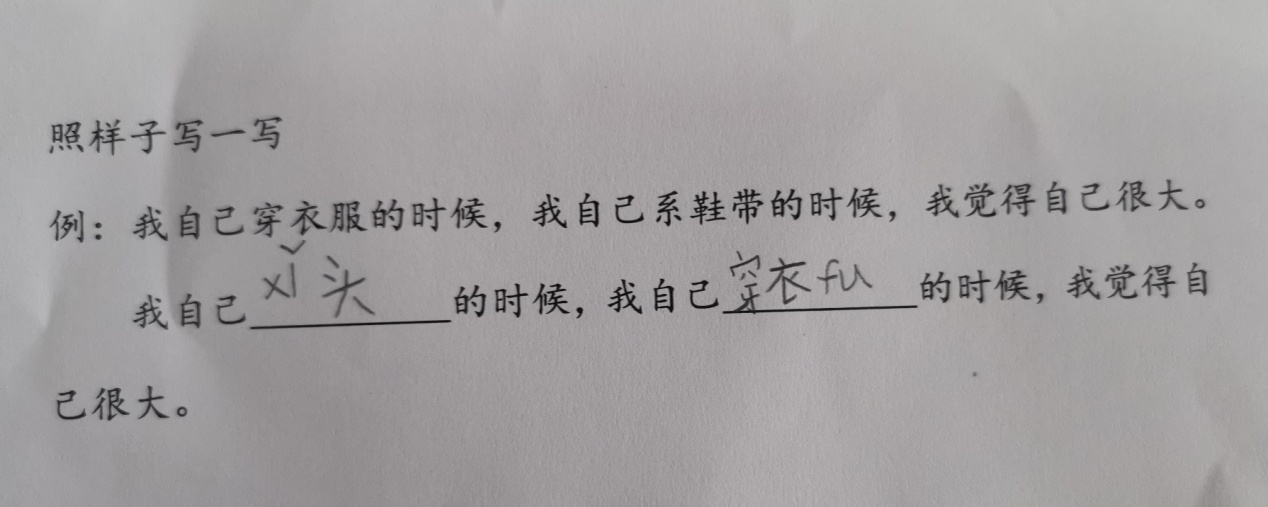 照样子写一写
例：我自己穿衣服的时候，我自己系鞋带的时候，我觉得自己很大。
我自己xǐ头的时候，我自己穿衣fu的时候，我觉得自
己很大。